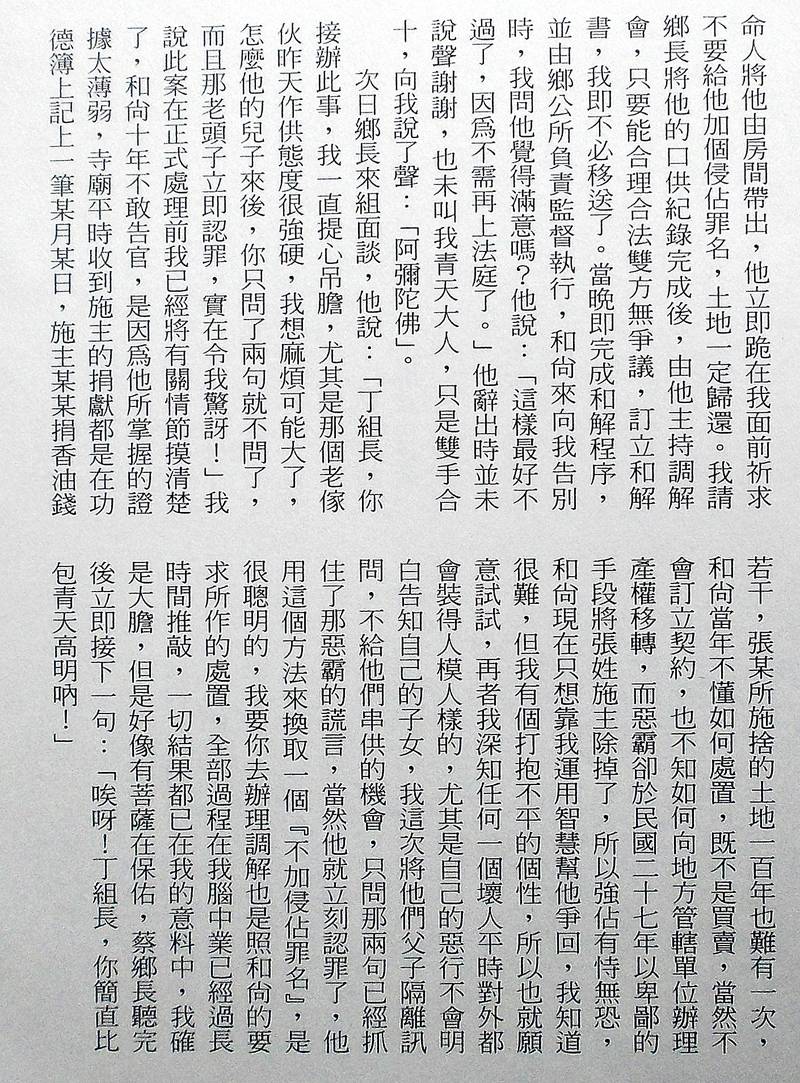 命人將他由房間帶出，他立即跪在我面前祈求
不要給他加個侵佔罪名，土地一定歸還。我請
鄉長將他的口供紀錄完成後，由他主持調解
會，只要能合理合法雙方無爭議，訂立和解
書，我即不必移送了。當晚即完成和解程序，
並由鄉公所負責監督執行，和尚來向我告別
時，我問他覺得滿意嗎？他說：「這樣最好不
過了，因為不需再上法庭了。」他辭出時並未
說聲謝謝，也未叫我青天大人，只是雙手合
十，向我說了聲：「阿彌陀佛」。
次日鄉長來組面談，他說：「丁組長，你
接辦此事，我一直提心吊膽，尤其是那個老傢
伙昨天作供態度很強硬，我想麻煩可能大了，
怎麼他的兒子來後，你只問了兩句就不問了，
而且那老頭子立即認罪，實在令我驚訝！」我
說此案在正式處理前我已經將有關情節摸清楚
了，和尚十年不敢告官，是因為他所掌握的證
據太薄弱，寺廟平時收到施主的捐獻都是在功
德簿上記上一筆某月某日，施主某某捐香油錢
若干，張某所施捨的土地一百年也難有一次，
和尚當年不懂如何處置，既不是買賣，當然不
會訂立契約，也不知如何向地方管轄單位辦理
產權移轉，而惡霸卻於民國二十七年以卑鄙的
手段將張姓施主除掉了，所以強佔有恃無恐，
和尚現在只想靠我運用智慧幫他爭回，我知道
很難，但我有個打抱不平的個性，所以也就願
意試試，再者我深知任何一個壞人平時對外都
會裝得人模人樣的，尤其是自己的惡行不會明
白告知自己的子女，我這次將他們父子隔離訊
問，不給他們串供的機會，只問那兩句已經抓
住了那惡霸的謊言，當然他就立刻認罪了，他
用這個方法來換取一個『不加侵佔罪名』，是
很聰明的，我要你去辦理調解也是照和尚的要
求所作的處置，全部過程在我腦中業已經過長
時間推敲，一切結果都已在我的意料中，我確
是大膽，但是好像有菩薩在保佑，蔡鄉長聽完
後立即接下一句：「唉呀！丁組長，你簡直比
包青天高明吶！」